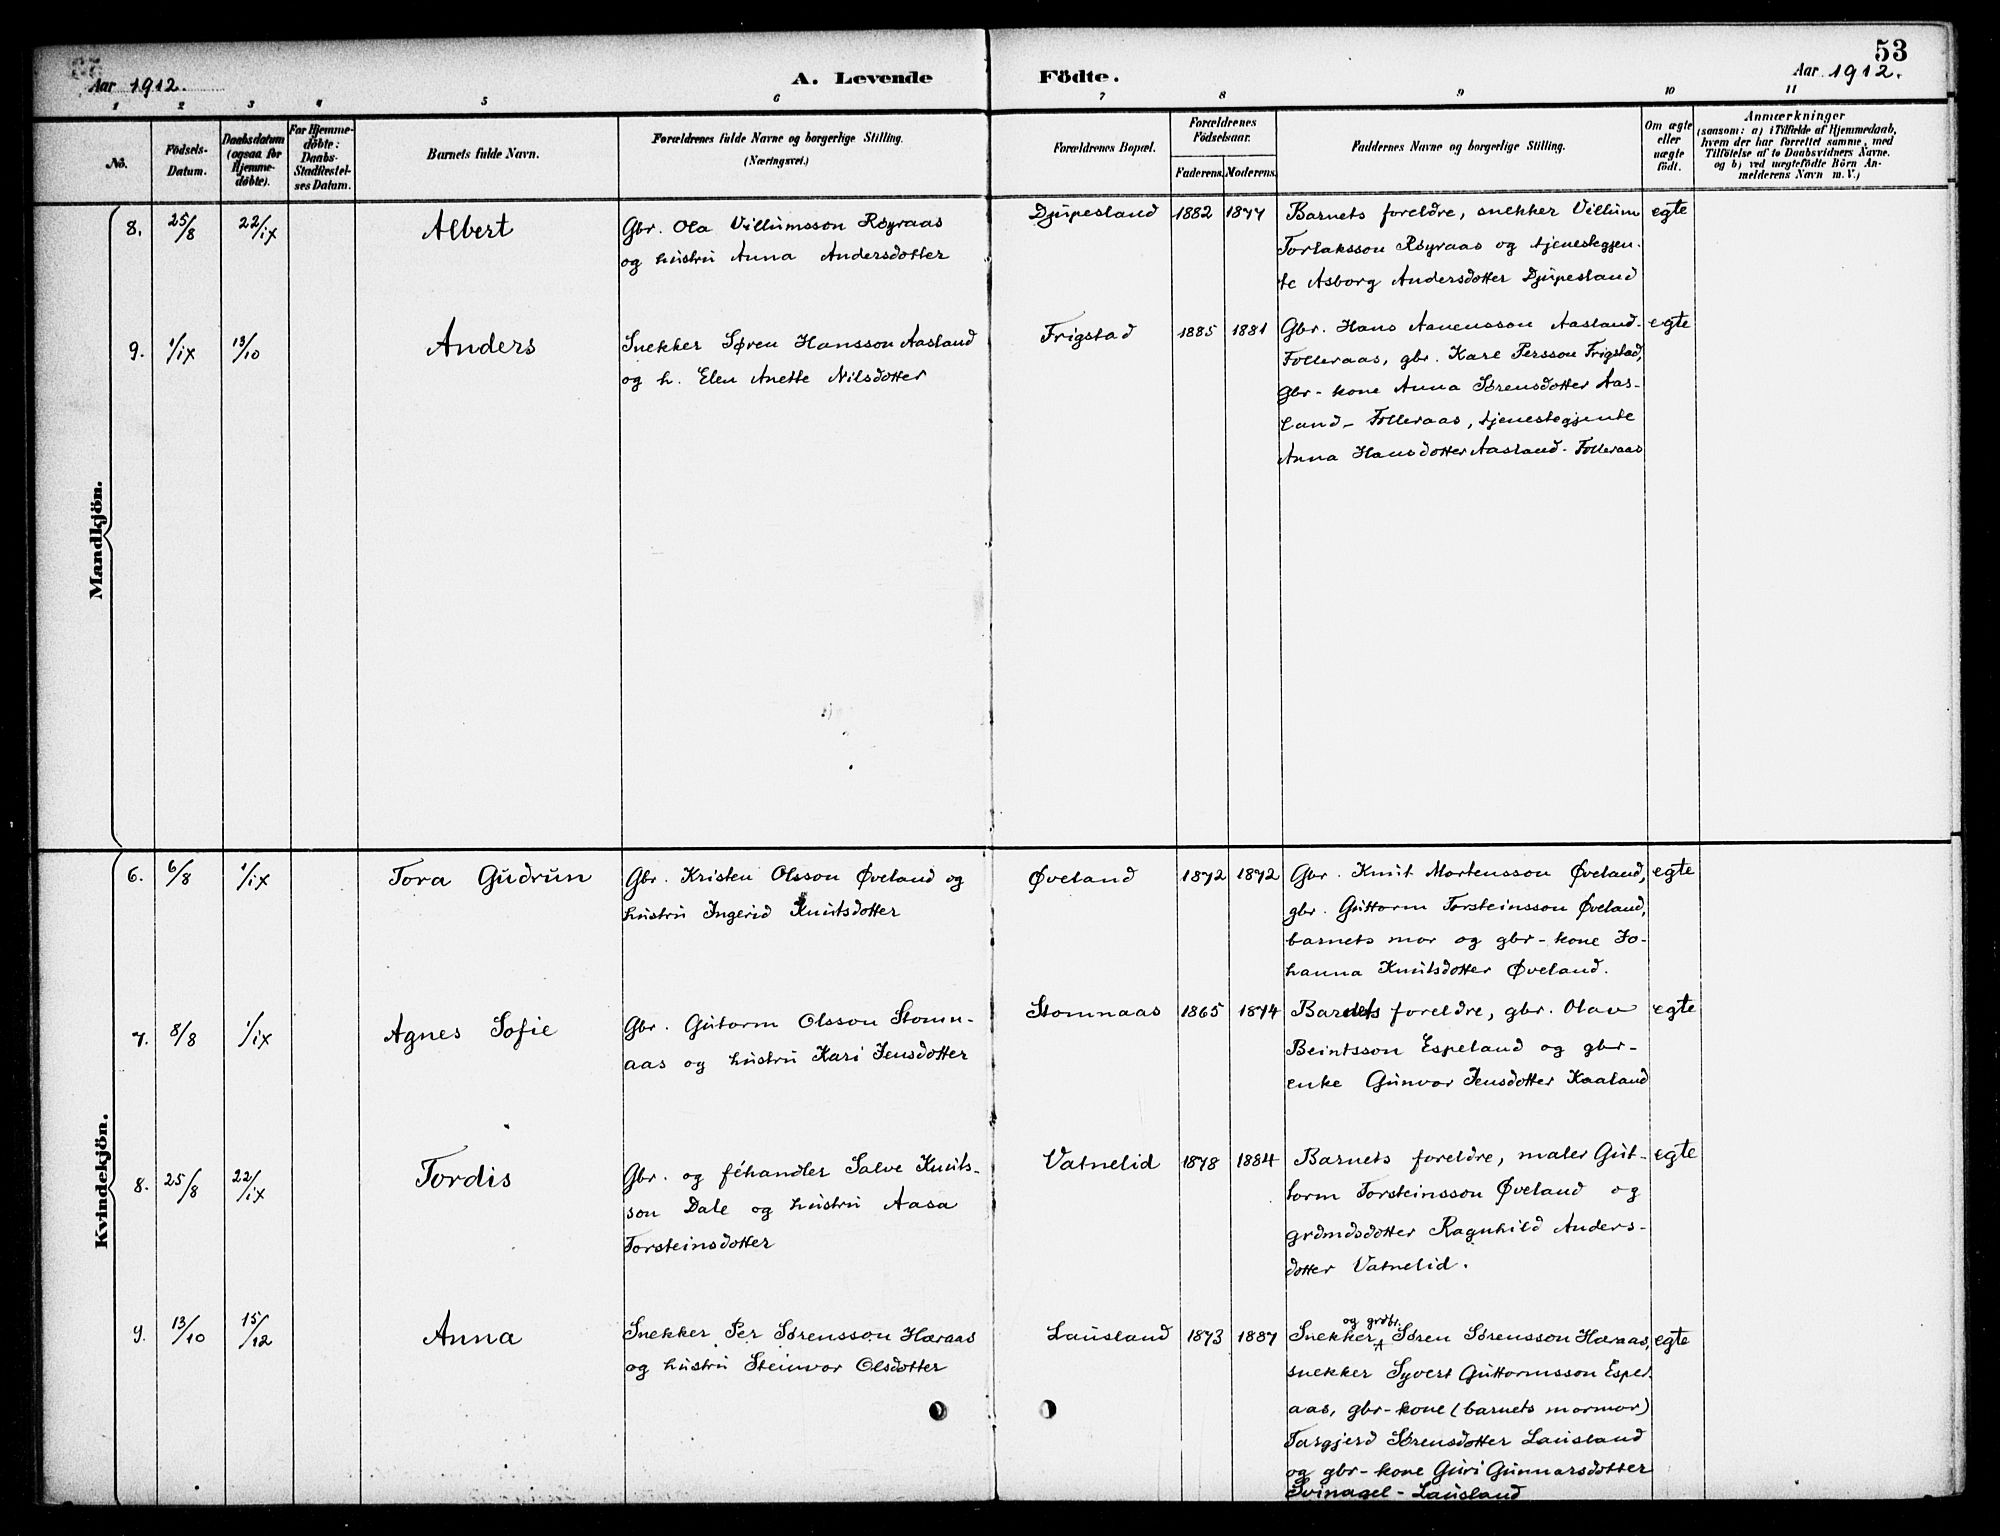 53
Aar 1912.
A. Levende Födte.
Aar 1912.
1 2 3 4 5 6 7 8 9 10 11
No.
Födsels-
Datum.
Daabsdatum
(ogsaa for
Hjemme-
døbte).
For Hjemme-
døbte:
Daabs-
Stadfæstel-
ses Datum.
Barnets fulde Navn.
Forældrenes fulde Navne og borgerlige Stilling.
(Næringsvei.)
Forældrenes Bopæl.
Forældrenes
Födselsaar.
Faderens. Moderens.
Faddernes Navne og borgerlige Stilling.
Om ægte
eller
uægte
födt.
Anmærkninger
(saasom: a) i Tilfælde af Hjemmedaab,
hvem der har forrettet samme, med
Tilföielse af to Daabsvidners Navne.
og b) ved uægtefödte Börn An-
melderens Navn m. V.)
Mandkjön.
8. 25/8 22/ix Albert
Gbr. Ola Villumsson Røyraas
og hustru Anna Andersdotter
Djupesland 1882 1877
Barnets foreldre, snekker Villum
Torlaksson Røyraas og tjenestegjen-
te Asborg Andersdotter Djupesland
egte
9. 1/ix 13/10 Anders
Snekker Søren Hansson Aasland
og h. Elen Anette Nilsdotter
Frigstad 1885 1881
Gbr. Hans Aanensson Aasland-
Folleraas, gbr. Karl Persson Frigstad,
Gbr-kone Anna Sørensdotter Aas-
land-Folleraas, tjenestegjente
Anna Hansdotter Aasland-Folleraas
egte
Kvindekjön.
6. 6/8 1/ix Tora Gudrun
Gbr. Kristen Olsson Øveland og
hustru Ingerid Knutsdotter
Øveland 1872 1872
Gbr. Knut Mortensson Øveland,
gbr. Guttorm Torsteinsson Øveland,
barnets mor og gbr-kone Jo-
hanna Knutsdotter Øveland.
egte
7. 8/8 1/ix Agnes Sofie
Gbr. Gutorm Olsson Stomn-
aas og hustru Kari Jensdotter
Stomnaas 1865 1874
Barnets foreldre, gbr. Olav
Beintsson Espeland og gbr-
enke Gunvor Jensdotter Kaaland
egte
8. 25/8 22/ix Tordis
Gbr. og féhandler Salve Knuts-
son Dale og hustru Aasa
Torsteinsdotter
Vatnelid 1878 1884
Barnets foreldre, maler Gut-
torm Torsteinsson Øveland og
grdmdsdotter Ragnhild Anders-
dotter Vatnelid.
egte
9. 13/10 15/12 Anna
Snekker Per Sørensson Høraas
og hustru Steinvor Olsdotter
Lausland 1873 1887
og grdbr.
Snekker Søren Sørensson Høraas,
snekker Syvert Guttormsson Esper-
aas, gbr-kone (barnets mormor)
Targjerd Sørensdotter Lausland
og gbr-kone Guri Gunnarsdotter
Svinagel-Lausland
egte